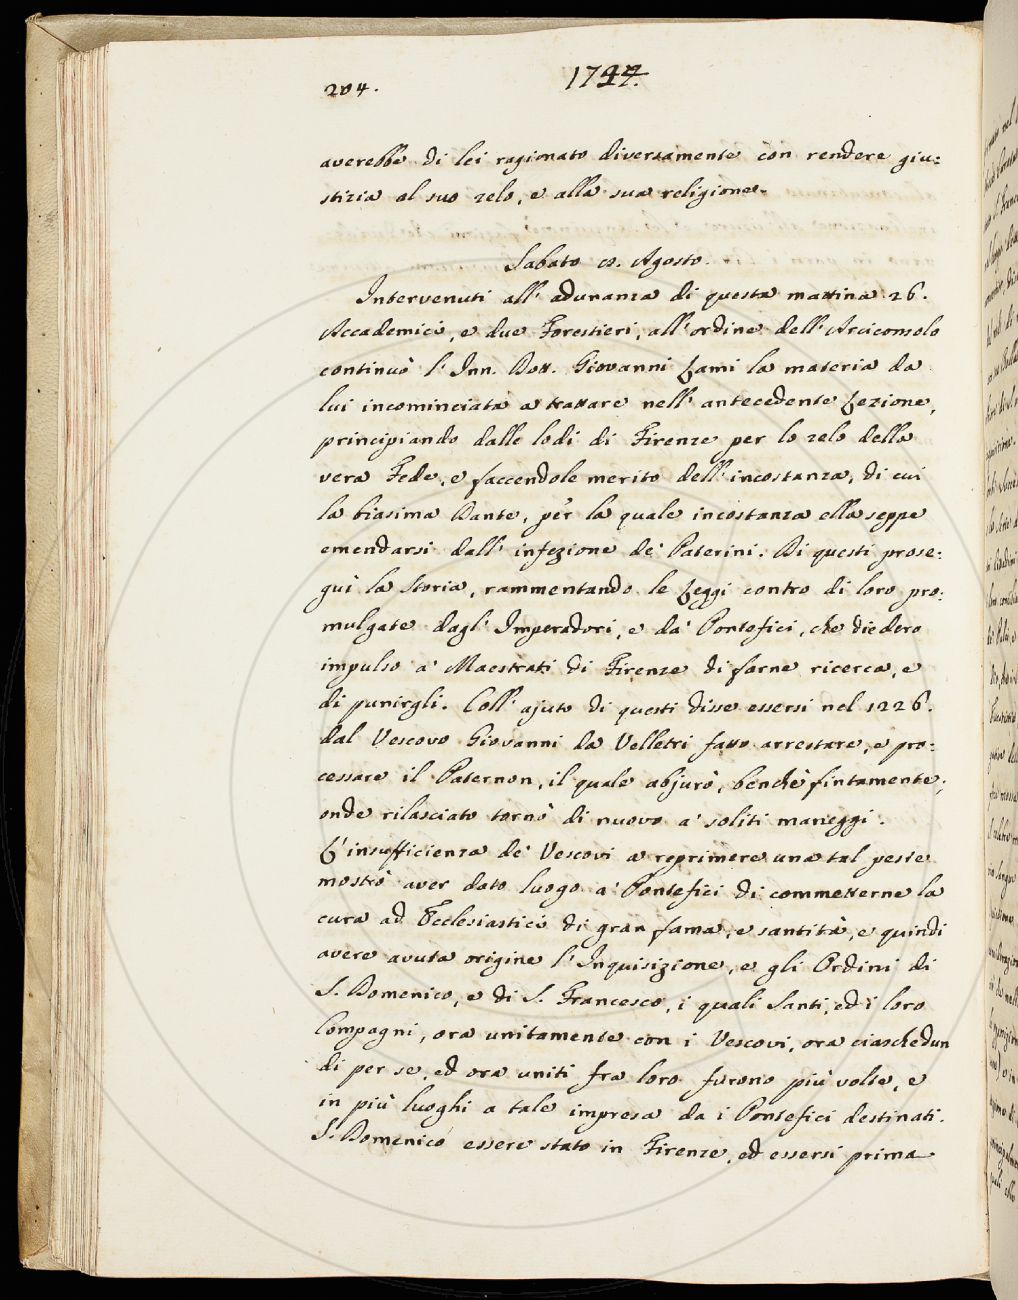 204.
1744.
averebbe di lei ragionato diversamente con rendere giu=
stizia al suo zelo, e alla sua religione.
Sabato Agosto.
Intervenuti all' adunanza di questa mattina 26.
Accademici, e due Forestieri, all' ordine dell' Arciconsolo
continuò l' Inn. Dott. Giovanni Lami la materia da
lui incominciata a trattare nell' antecedente Lezione,
principiando dalle lodi di Firenze per lo zelo della
vera Fede, e faccendole merito dell' incostanza, di cui
la biasima Dante, per la quale incostanza ella seppe
emendarsi dall' infezione de' Paterini. Di questi prose:
guì la Storia, rammentando le Leggi contro di loro pro:
mulgate dagl' Imperadori, e da' Pontefici, che diedero
impulso a' Maestrati di Firenze di farne ricerca, e
di punirgli. Coll' ajuto di questi disse essersi nel 1226.
dal Vescovo Giovanni da Velletri fatto arrestare, e pro:
cessare il Paternon, il quale abjurò, benchè fintamente;
onde rilasciato tornò di nuovo a' soliti maneggi.
L' insufficienza de' Vescovi a reprimere una tal peste
mostrò aver dato luogo a' Pontefici di commetterne la
cura ad Ecclesiastici di gran fama, e santità, e quindi
avere avuta origine l' Inquisizione, e gli Ordini di
S. Domenico, e di S. Francesco, i quali Santi, ed i loro
Compagni, ora unitamente con i Vescovi, ora ciaschedun
di per se, ed ora uniti fra loro furono più volte, e
in più luoghi a tale impresa da i Pontefici destinati.
S. Domenico essere stato in Firenze, ed essersi prima